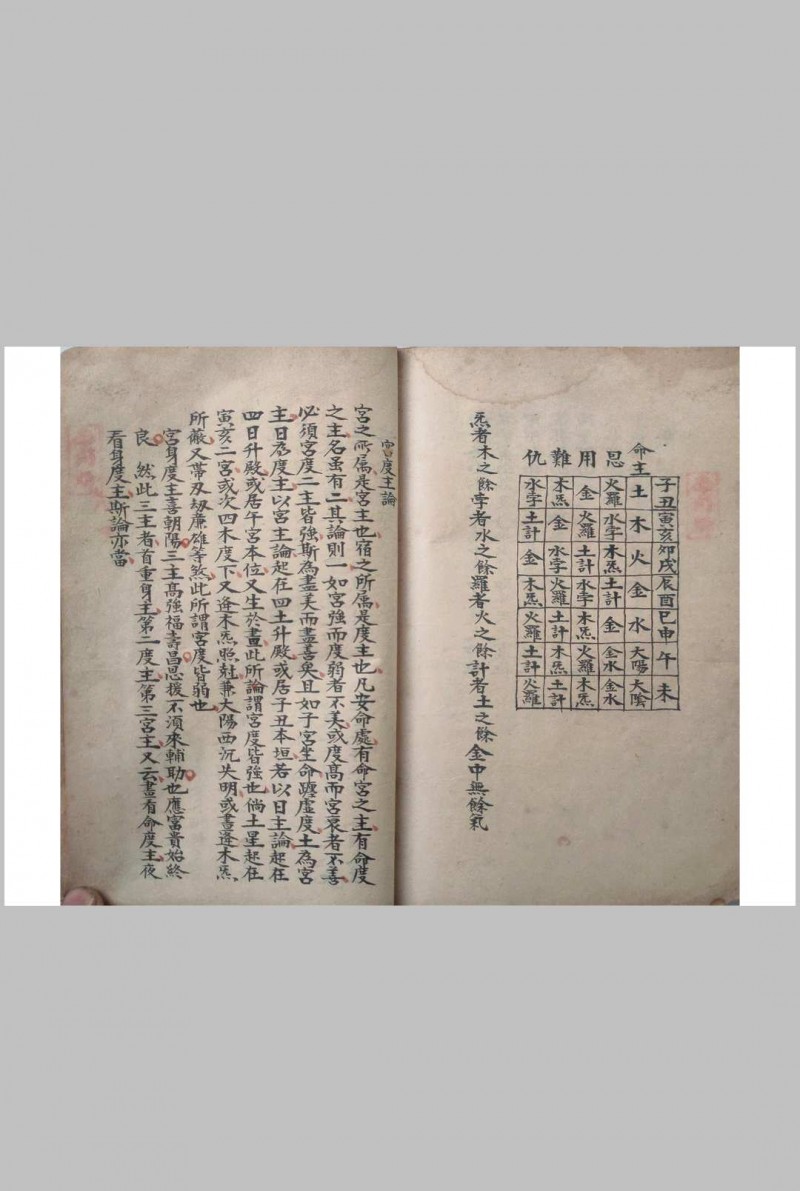 子丑 寅亥 卯戌 辰酉 巳申 午 未
命主 土 木 火 金 水 太陽 太陰
恩 火羅 水孛 木炁 土計 金 金水 金水
用 金 火羅 土計 水孛 木炁 火羅 木炁
難 木炁 金 水孛 火羅 土計 木炁 土計
仇 水孛 土計 金 木炁 火羅 土計 火羅
炁者木之餘孛者水之餘羅者火之餘計者土之餘金中無餘氣
宮度主論
宮之所属是宮主也宿之所属是度主也凡安命處有命宮之主有命度
之主名虽有二其論則一如宮強而度弱者不美或度高而宮衰者不善
必須宮度二主皆強斯為盡美而盡善矣且如子宮坐命躔虛度土為宮
主日為度主以宮主論起在四土升殿或居子丑本垣若以日主論起在
四日升殿或居午宮本位又生於晝此所論謂宮度皆強也倘土星起在
寅亥二宮或次四木度下又逢木炁照尅兼太陽西沉失明或晝逢木炁
所蔽又帶刄刼廉雄等煞此所謂宮度皆弱也
宮身度主喜朝陽三主高強福壽昌恩援不須來輔助也應富貴始終
良 然此三主者首重身主第二度主第三宮主又云晝有命度主夜
看身度主斯論亦當